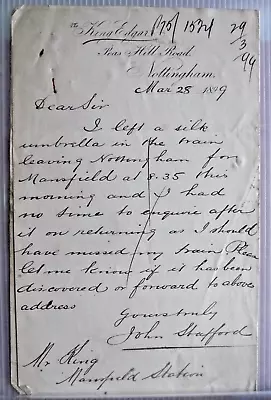 The King Edgar /75/ 1534 29/3/99
Peas Hill Road.
Nottingham.
Mar 28 1899
Dear Sir
I left a silk
umbrella in the train
leaving Nottingham for
Mansfield at 8.35 this
morning and I had
no time to enquire after
it on returning as I should
have missed my train Please
let me know if it has been
discovered or forward to above
address
Yours truly
John Stafford
Mr King
Mansfield Station